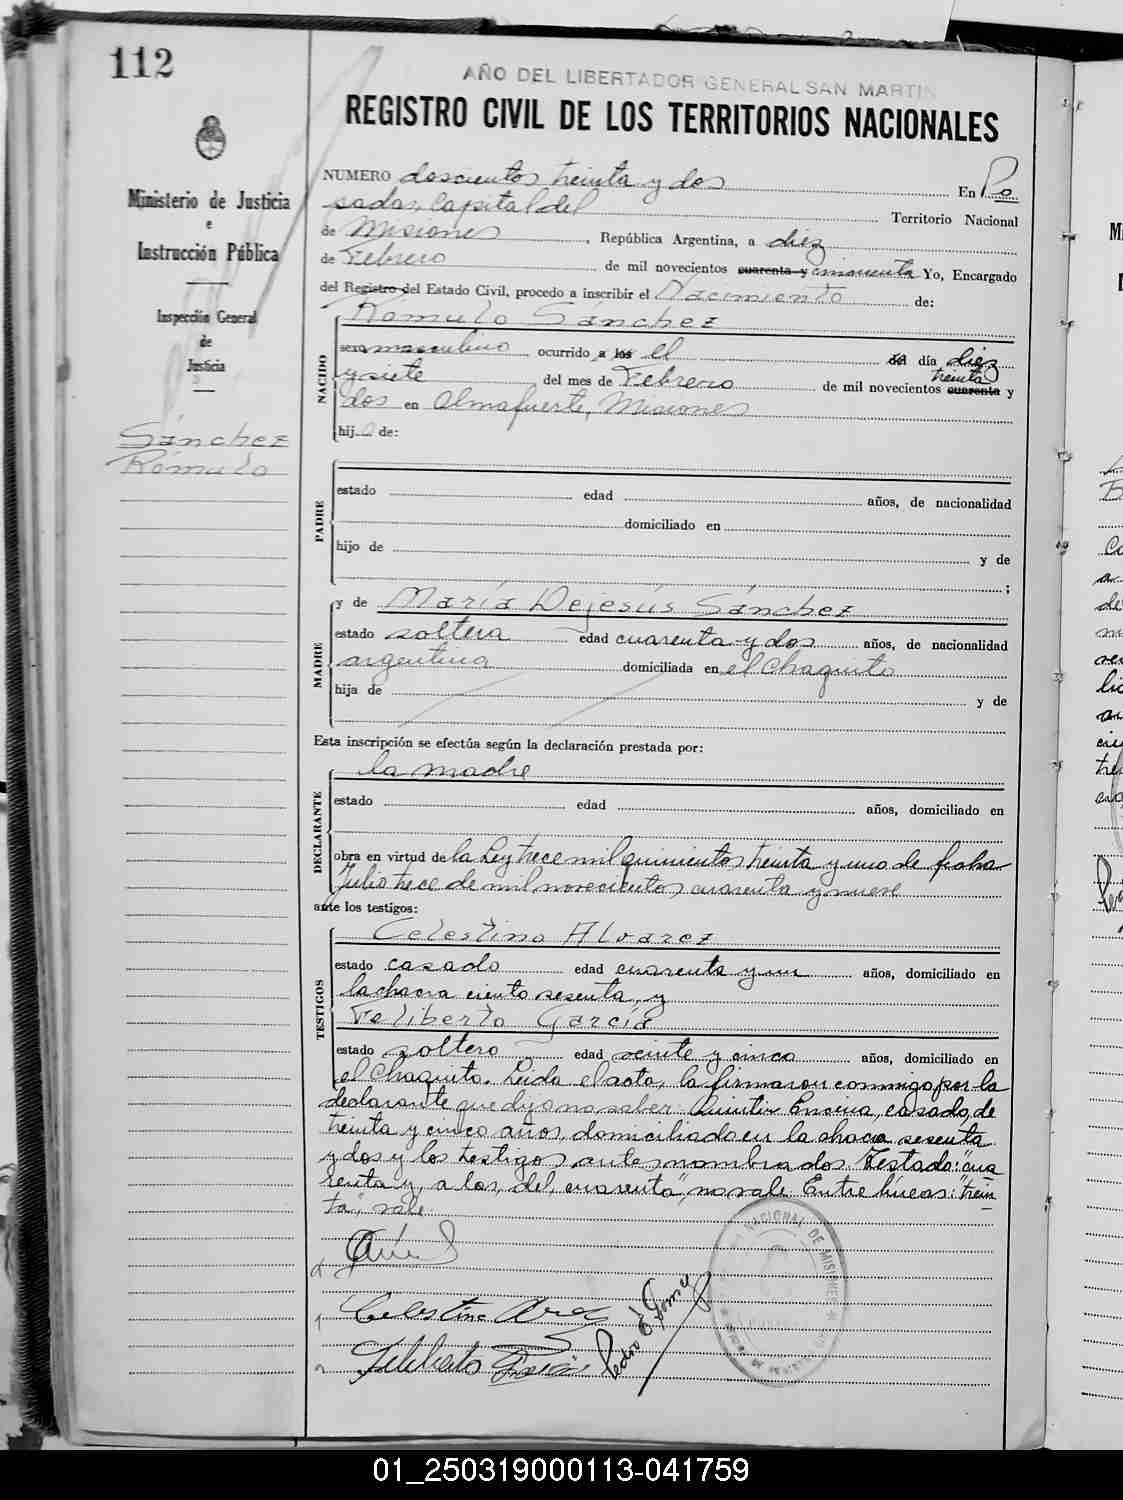 112
AÑO DEL LIBERTADOR GENERAL SAN MARTIN
REGISTRO CIVIL DE LOS TERRITORIOS NACIONALES
Ministerio de Justicia
e
Instrucción Pública
Inspección General
de
Justicia
Sánchez
Rómulo
NUMERO doscientos treinta y dos En Po
sadas, Capital del Territorio Nacional
de Misiones, República Argentina, a diez
de Febrero de mil novecientos cuarenta y cincuenta Yo, Encargado
del Registro del Estado Civil, procedo a inscribir el Nacimiento de:
Rómulo Sánchez
NACIDO
sexo masculino ocurrido a las el del día diez
y siete del mes de Febrero de mil novecientos cuarenta treinta y
dos en Almafuerte, Misiones
hijo de:
PADRE
estado edad años, de nacionalidad
domiciliado en
hijo de y de
;
MADRE
y de María Dejesús Sánchez
estado soltera edad cuarenta y dos años, de nacionalidad
argentina domiciliada en el Chaquito
hija de y de
Esta inscripción se efectúa según la declaración prestada por:
la madre
DECLARANTE
estado edad años, domiciliado en
obra en virtud de la Ley trece mil quinientos treinta y uno de fecha
Julio trece de mil novecientos cuarenta y nueve
ante los testigos:
Celestino Alvarez
TESTIGOS
estado casado edad cuarenta y un años, domiciliado en
la chacra ciento sesenta, y
Feliberto García
estado soltero edad veinte y cinco años, domiciliado en
el Chaquito. Leida el acta, la firmaron conmigo, por la
declarante que dijo no saber Quintin Encina, casado, de
treinta y cinco años, domiciliado en la chacra sesenta
y dos y los testigos antes nombrados Testado: "cua
renta y, a las, del, cuarenta", no vale. Entre líneas: "trein
ta", vale.
Celestino
Feliberto
Pedro E. Gomez
NACIONAL DE MISIONES
01_250319000113-041759